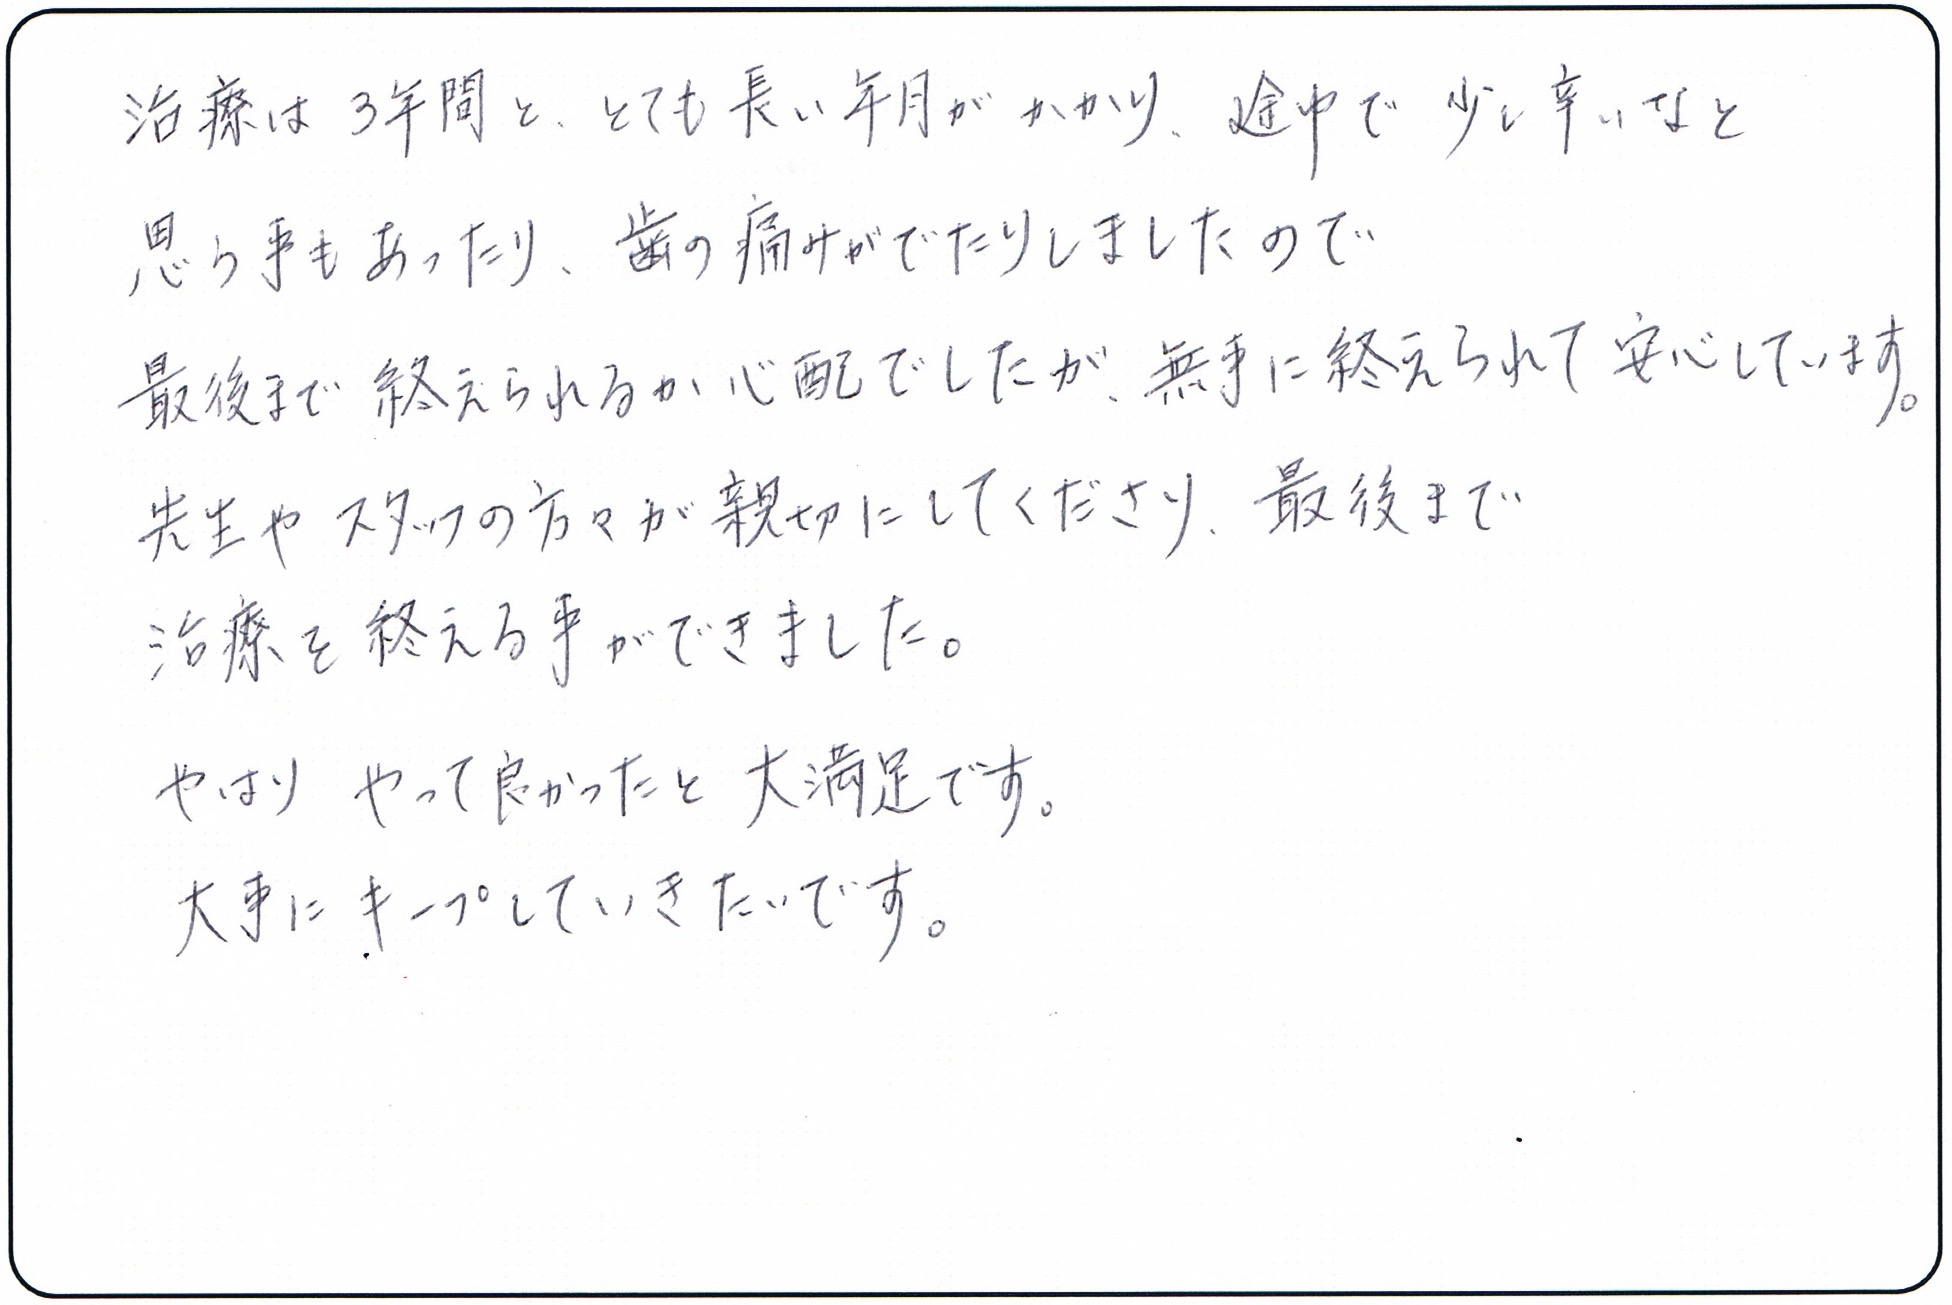 治療は3年間と、とても長い年月がかかり、途中で少し辛いなと
思う事もあったり、歯の痛みがでたりしましたので
最後まで終えられるか心配でしたが、無事に終えられて安心しています。
先生やスタッフの方々が親切にしてくださり、最後まで
治療を終える事ができました。
やはり やって良かったと大満足です。
大事にキープしていきたいです。